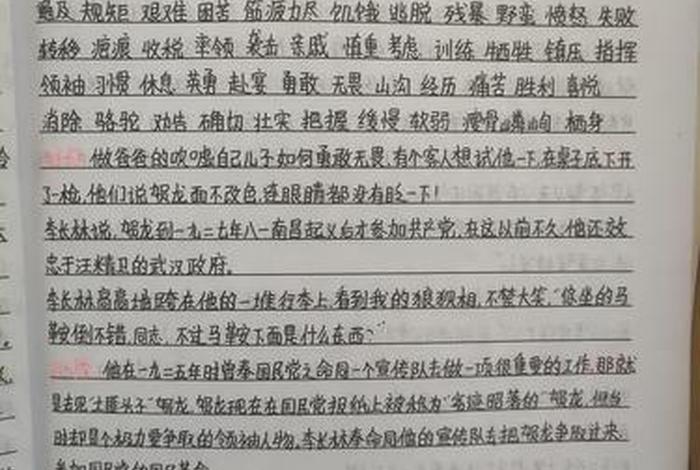 及 规矩 艰难 困苦 筋疲力尽 饥饿 逃脱 残暴 野蛮 愤怒 失败
转移 疮痕 收税 率领 袭击 亲戚 慎重 考虑 训练 牺牲 镇压 指挥
领袖 习惯 休息 英勇 赴宴 勇敢 无畏 山沟 经历 痛苦 胜利 喜悦
消除 骆驼 劝告 确切 壮实 把握 缓慢 软弱 瘦骨嶙峋 栖身
做爸爸的吹嘘自己儿子如何勇敢无畏,有个客人想试他一下,在桌子底下开
了一枪,他们说贺龙面不改色,连眼睛都没有眨一下!
李长林说,贺龙到一九二七年八一南昌起义后才参加共产党,在这以前不久,他还效
忠于汪精卫的武汉政府。
李长林高高地跨在他的一堆行李上,看到我的狼狈相,不禁大笑,“你坐的马
鞍倒不错,同志,不过马鞍下面是什么东西?”
他在一九二五年时曾奉国民党之命同一个宣传队去做一项很重要的工作,那就
是去见“土匪头子”贺龙,贺龙现在在国民党报纸上被称为“劣迹昭著的”贺龙,但当
时却是个极力要争取的领袖人物,李长林奉命同他的宣传队去把贺龙争取过来,
参加国民党的国民革命